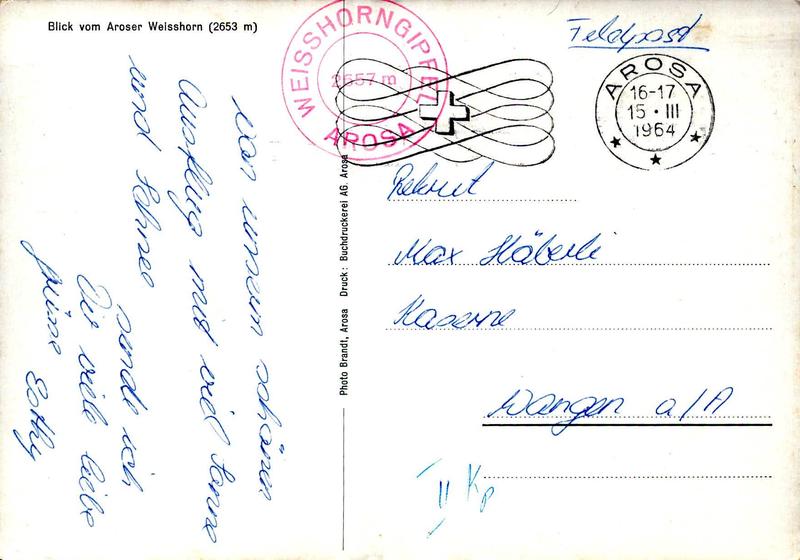 Blick vom Aroser Weisshorn (2653 m)
WEISSHORNGIPFEL
2657 m
AROSA
Feldpost
AROSA
16-17
15 · III
1964
Von unserm schönen
Ausflug mit viel Sonne
und Schnee
sende ich
Dir viele liebe
Grüsse Esthy
Photo Brandt, Arosa Druck: Buchdruckerei AG. Arosa
Rekrut
Max Häberli
Kaserne
Wangen a/A
II Kp